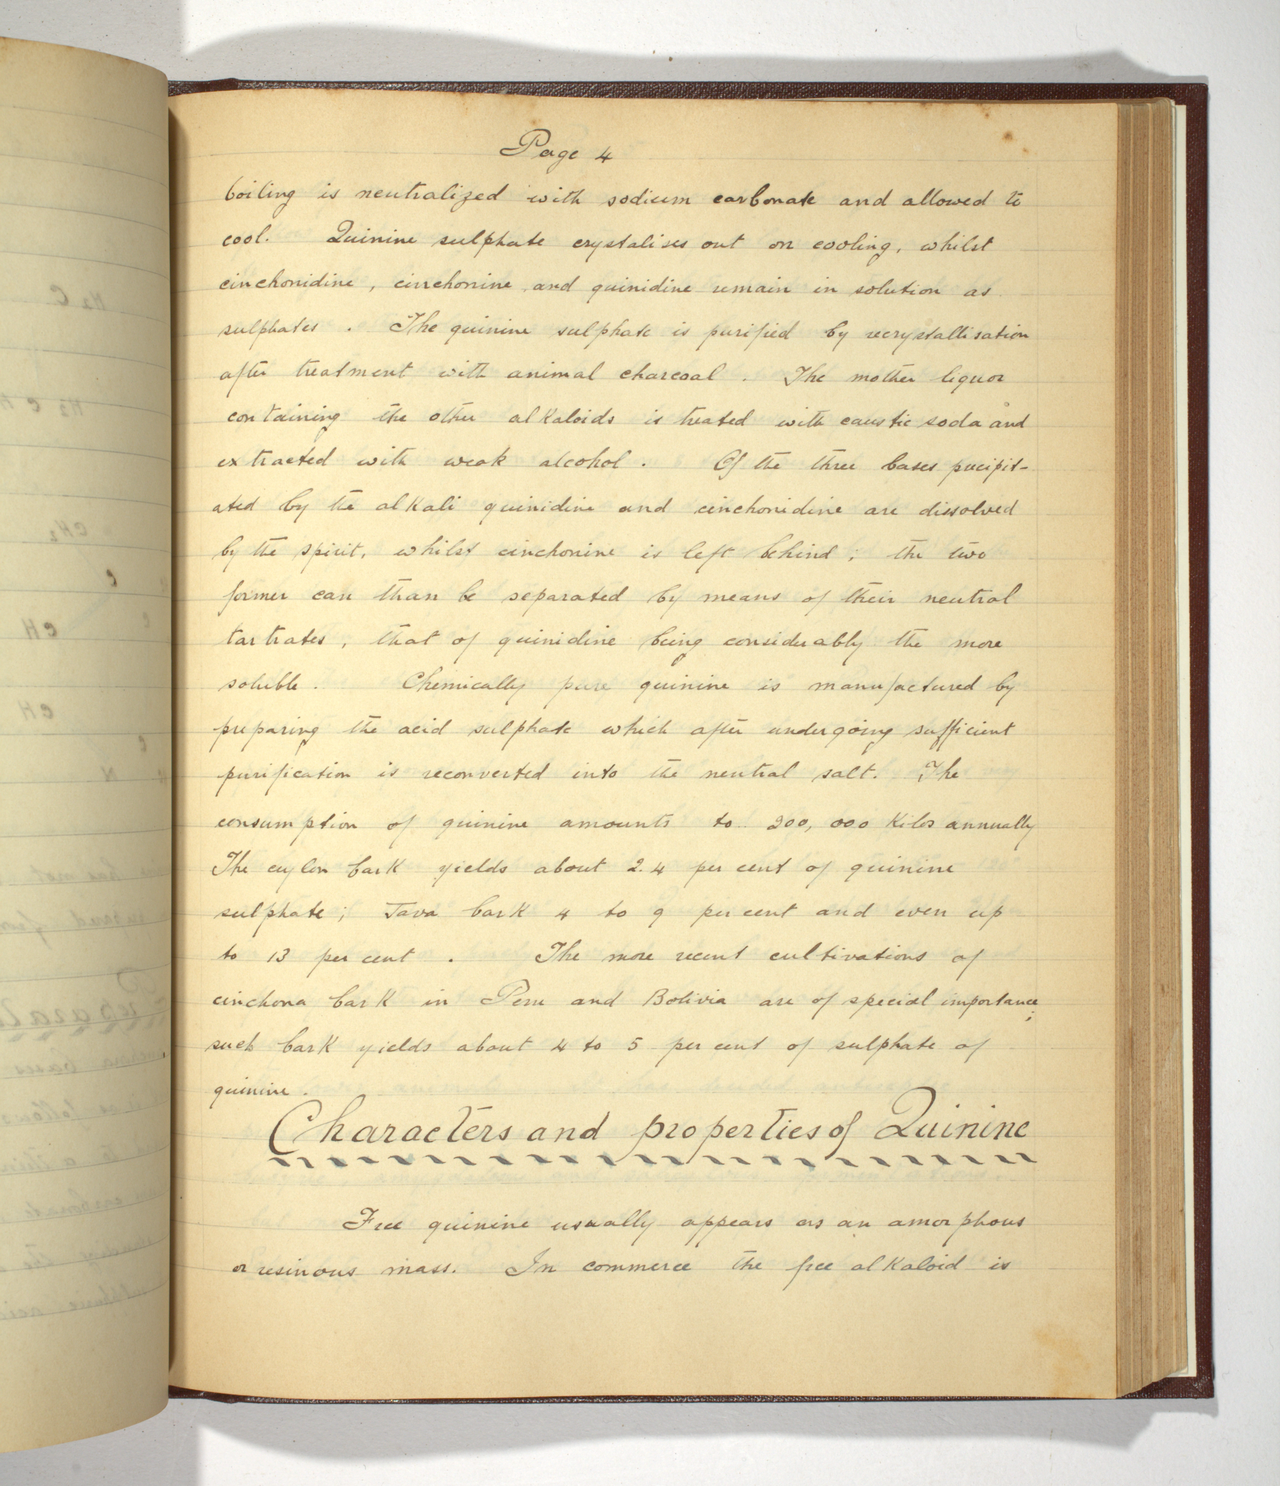 Page 4
boiling is neutralized with sodium carbonate and allowed to
cool. Quinine sulphate crystalises out on cooling, whilst
cinchonidine, cinchonine and quinidine remain in solution as
sulphates. The quinine sulphate is purified by recrystallisation
after treatment with animal charcoal. The mother liquor
containing the other alkaloids is treated with caustic soda and
extracted with weak alcohol. Of the three bases precipit-
ated by the alkali quinidine and cinchonidine are dissolved
by the spirit, whilst cinchonine is left behind; the two
former can than be separated by means of their neutral
tartrates, that of quinidine being considerably the more
soluble. Chemically pure quinine is manufactured by
preparing the acid sulphate which after undergoing sufficient
purification is reconverted into the neutral salt. The
consumption of quinine amounts to 200,000 Kilos annually
The ceylon bark yields about 2.4 per cent of quinine
sulphate; Java bark 4 to 9 per cent and even up
to 13 per cent. The more recent cultivations of
cinchona bark in Peru and Bolivia are of special importance;
such bark yields about 4 to 5 per cent of sulphate of
quinine.
Characters and properties of Quinine
Free quinine usually appears as an amorphous
or resinous mass. In commerce the free alkaloid is